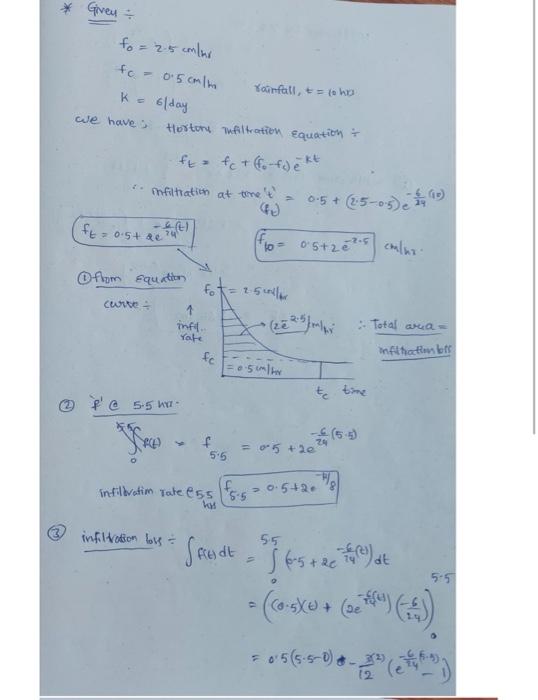 * Given ÷
f₀ = 2.5 cm/hr
fc = 0.5 cm/hr
rainfall, t = 10 hrs
K = 6/day
we have ; Hortons infiltration Equation ÷
ft = fc + (f₀-fc) e^-kt
∴ infiltration at time 't' (ft) = 0.5 + (2.5-0.5) e^-6/24 (10)
ft = 0.5 + 2e^-6/24(t)
f10 = 0.5 + 2e^-2.5 cm/hr.
① from Equation
curve ÷
f₀ = 2.5 cm/hr
↑
infil..
rate
(2e^-2.5) m/hr
∴ Total area =
infiltration loss
fc
= 0.5 cm/hr
tc time
② f' @ 5.5 hrs.
f5.5 = 0.5 + 2e^-6/24 (5.5)
infiltration rate @ 5.5 hrs f5.5 = 0.5 + 2e^-11/8
③ infiltration loss ÷ ∫ f(t) dt = ∫₀^5.5 (0.5 + 2e^-6/24 (t)) dt
= ((0.5)(t) + (2e^-6/24(t)) (-6/24))₀^5.5
= 0.5 (5.5-0) - (e^-6/24 (5.5) - 1)